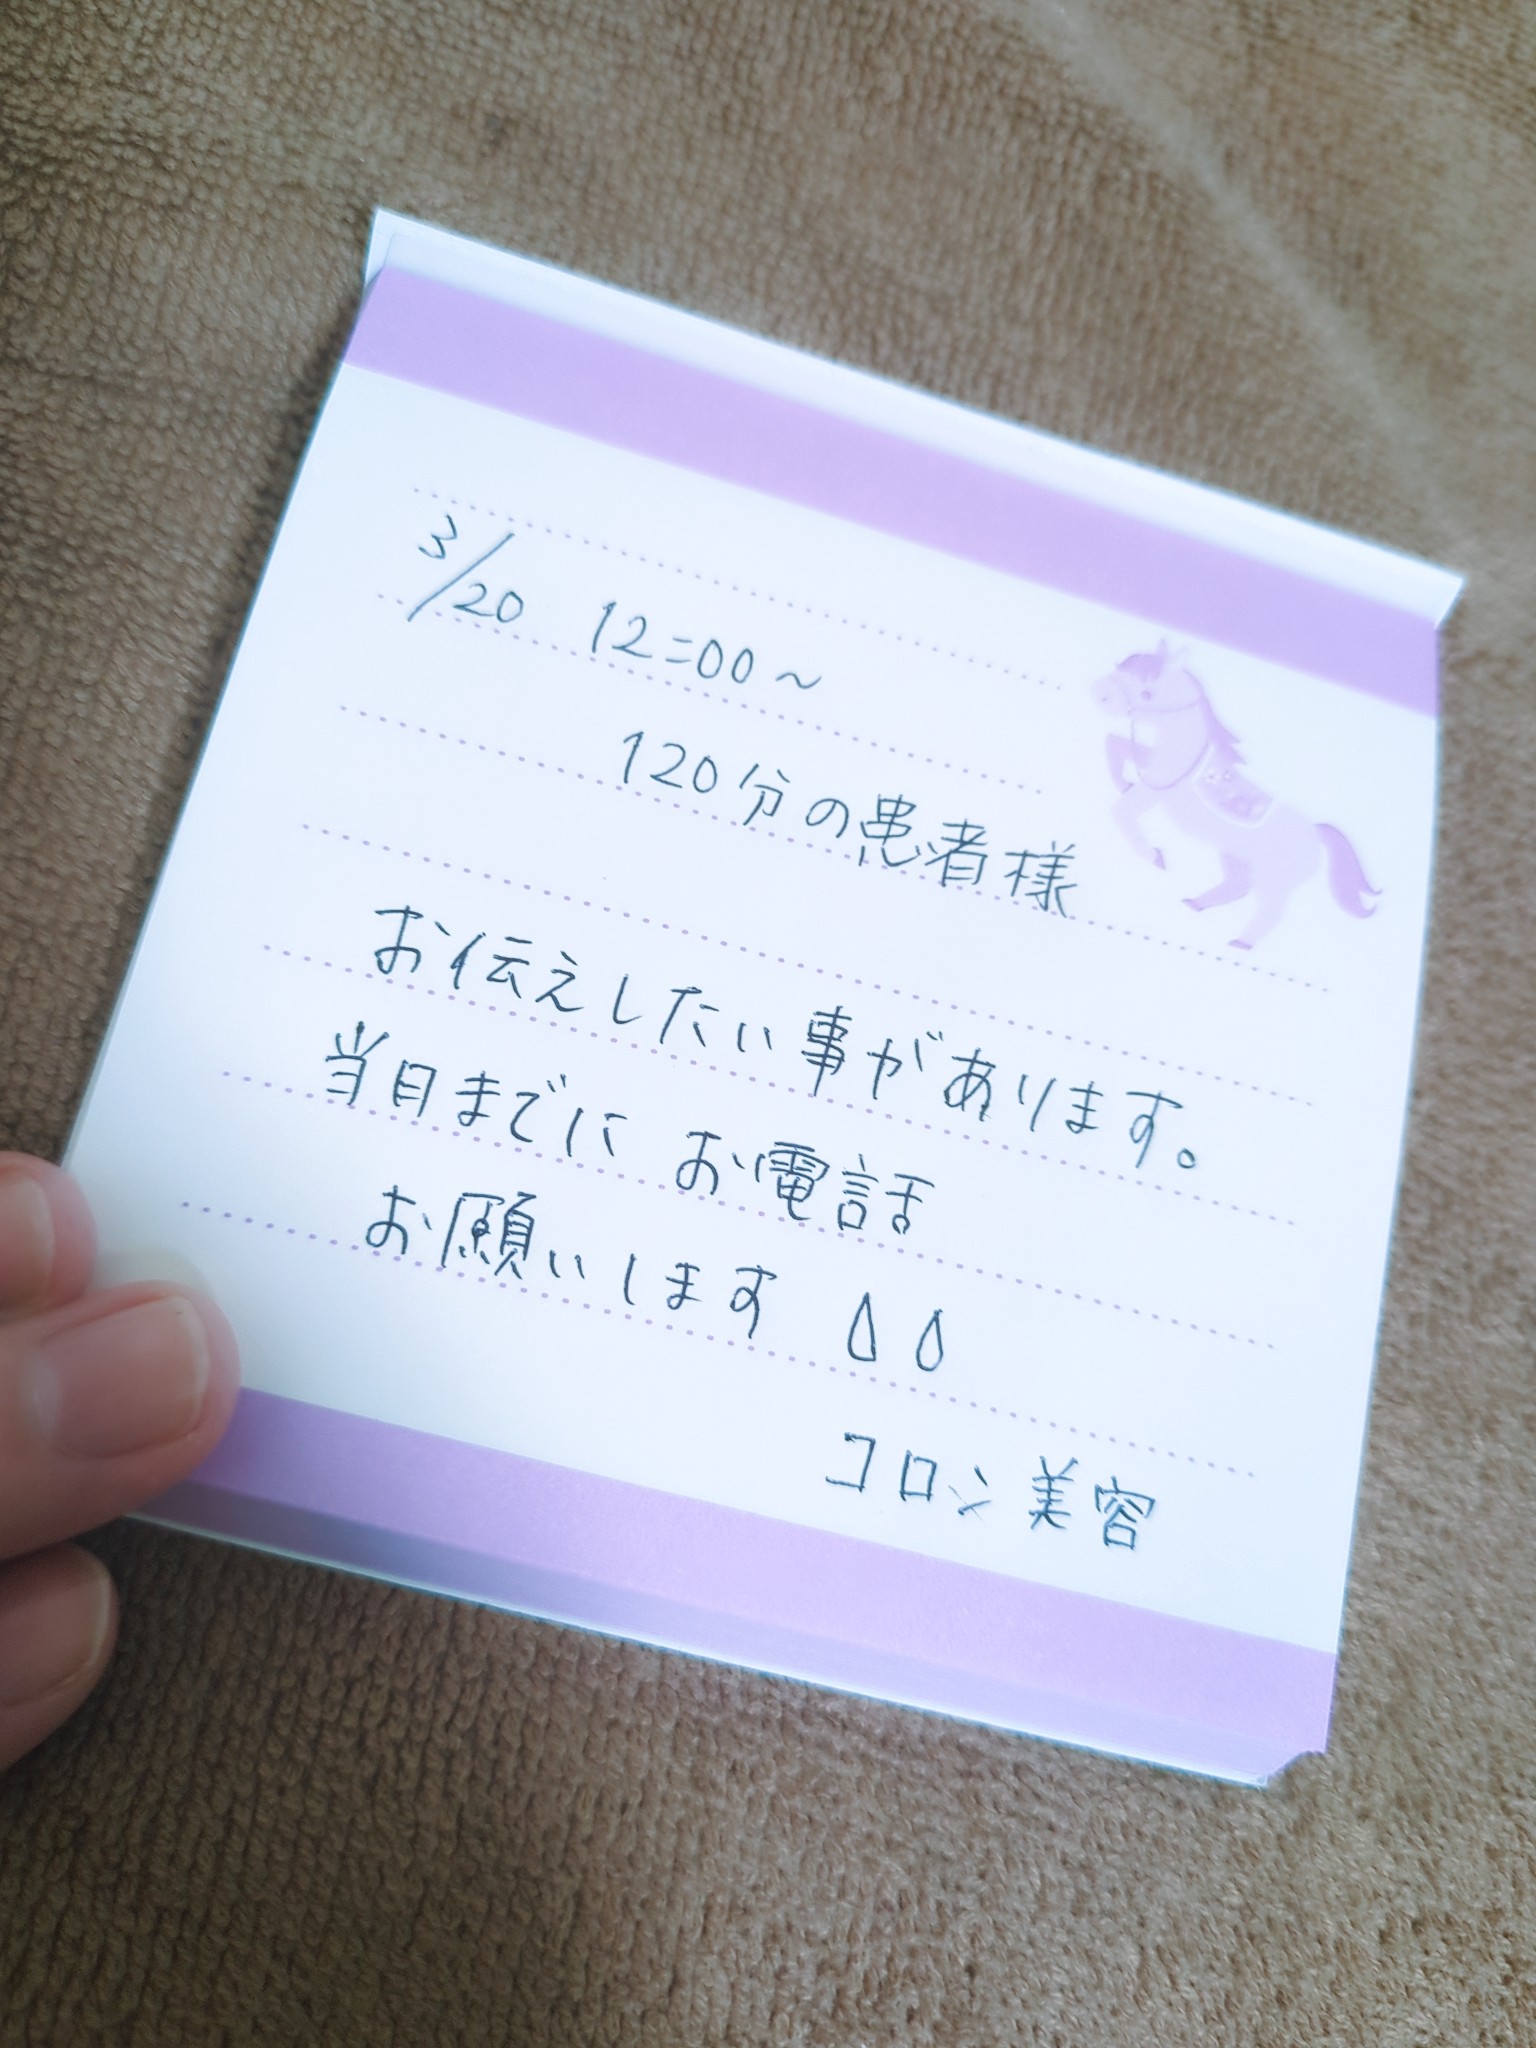 3/20 12:00～
120分の患者様
お伝えしたい事があります。
当日までに お電話
お願いします
コロン美容